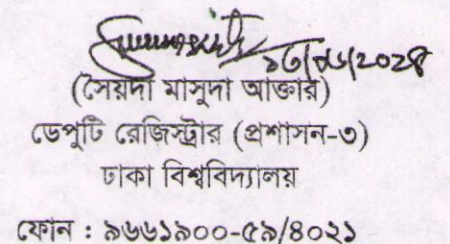 (সৈয়দা মাসুদা আক্তার)
ডেপুটি রেজিস্ট্রার (প্রশাসন-৩)
ঢাকা বিশ্ববিদ্যালয়
ফোন : ৯৬৬১৯০০-৫৯/৪০২১